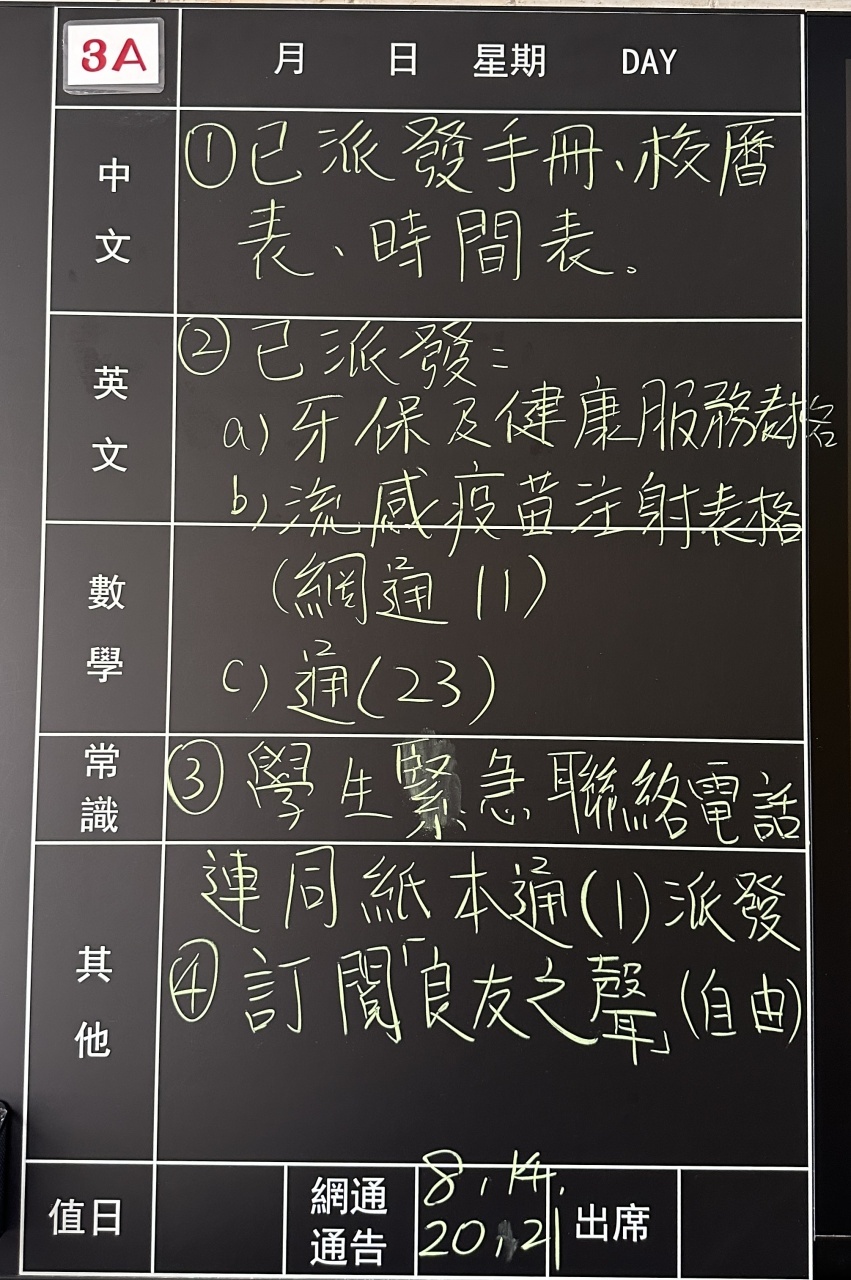 3A 月 日 星期 DAY
中文
①已派發手冊、校曆
表、時間表。
英文
②已派發：
a) 牙保及健康服務表格
b) 流感疫苗注射表格
數學
(網通 11)
c) 通(23)
常識
③學生緊急聯絡電話
其他
連同紙本通(1)派發
④訂閱「良友之聲」(自由)
值日 網通通告 8, 14, 出席
20, 21